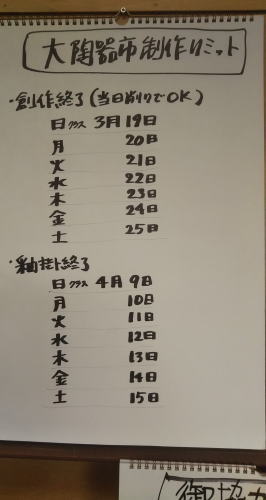 大陶器市制作リミット
・創作終了(当日削りでOK)
日クラス 3月19日
月 20日
火 21日
水 22日
木 23日
金 24日
土 25日
・釉掛終了
日クラス 4月9日
月 10日
火 11日
水 12日
木 13日
金 14日
土 15日
御協